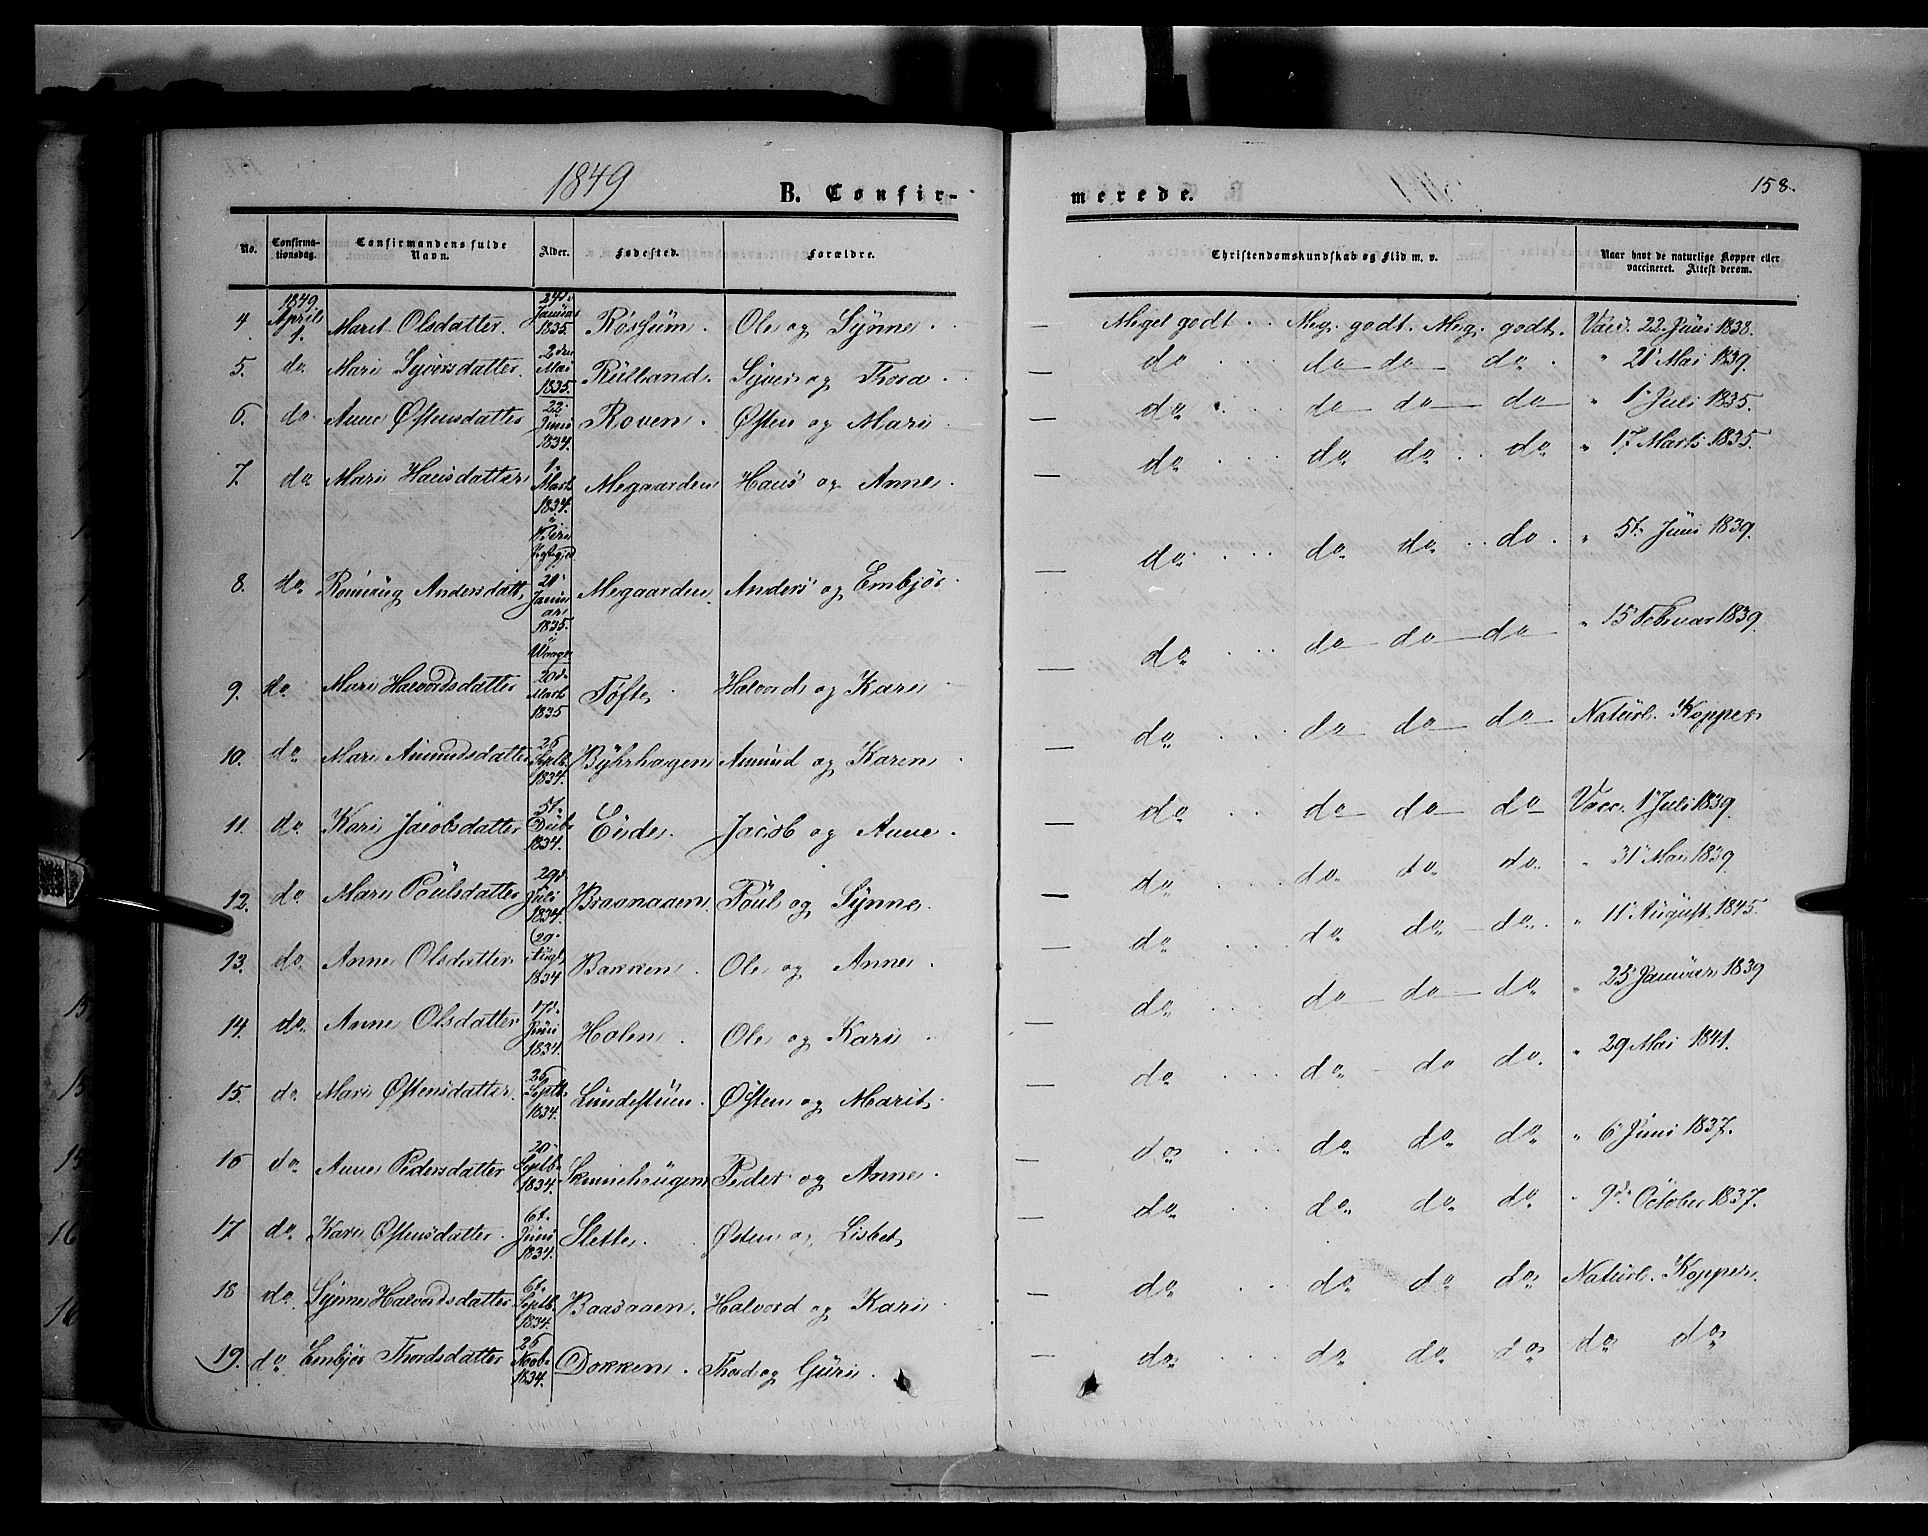 1849
B. Confir-
merede.
158.
No. Confirmationsdag. Confirmandens fulde Navn. Alder. Fødested. Forældre. Christendomskundskab og Flid m. v. Naar havt de naturlige Kopper eller vaccineret. Attest derom.
4 1849 April 1. Marit Olsdatter. 24d Januar 1835. Ole og Synne. — Meget godt . . Meg. godt. Meg. godt. Vacc. 22 Juni 1838.
5. do Mari Syversdatter. 2den Mai 1835. Rülland. Syver og Thora — do do — do — do " 21 Mai 1839.
6. do Anne Østensdatter 22 Juni 1834. Roven. Østen og Mari — do do — do — do — " 1 Juli 1835.
7. do Mari Hansdatter 1. Marts 1834. Megaarden Hans og Anne. — do do do do " 17 Marts 1835.
8. do Andersdatt. 21 Januar 1835. Megaarden. Anders og Embjør. — do do do do " 5t Juni 1839.
9. do Mari Halvordsdatter 20d Marts 1835 Tøfte. Halvord og Kari — do do — do — do — " 15 Februar 1839.
10. do Mari Amundsdatter 25 Septb. 1834. Býhrhagen Amund og Karen — do do — do — do — Natürl. Kopper
11. do Kari Jacobsdatter 5t 1834. Eide. Jacob og Anne. — do do — do — do — Vacc. 1 Juli 1839.
12. do Mari Poülsdatter 29d Juli 1834. Braanaaen. Poül og Synne. — do do do do. " 31 Mai 1839.
13. do. Anne Olsdatter. 29 Augt. 1834 Bakken. Ole og Anne. — do do do — do. " 11 August 1845.
14. do. Anne Olsdatter 17. Juni 1834. Holen. Ole og Kari. — do do — do — do " 25 Januar 1839
15. do. Mari Østensdatter. 25 Septb. 1834. Lundestuen. Østen og Marit. — do do do do. " 29 Mai 1841.
16 do. Anne Pedersdatter 20 Septb. 1834. Skinnehaugen Peder og Anne. — do do do do " 6 Juni 1837.
17 do. Kari Østensdatter. 6t. Juni 1834. Slette. Østen og Lisbet — do do do do " 9d October 1837.
18 do. Synne Halvordsdatter 6t. Septb. 1834. Baasaaen. Halvord og Kari — do do do do Natürl. Kopper.
19. do Embjør Thordsdatter 25 Novb. 1834. Dokken. Thord og Guri. — do do do do do do